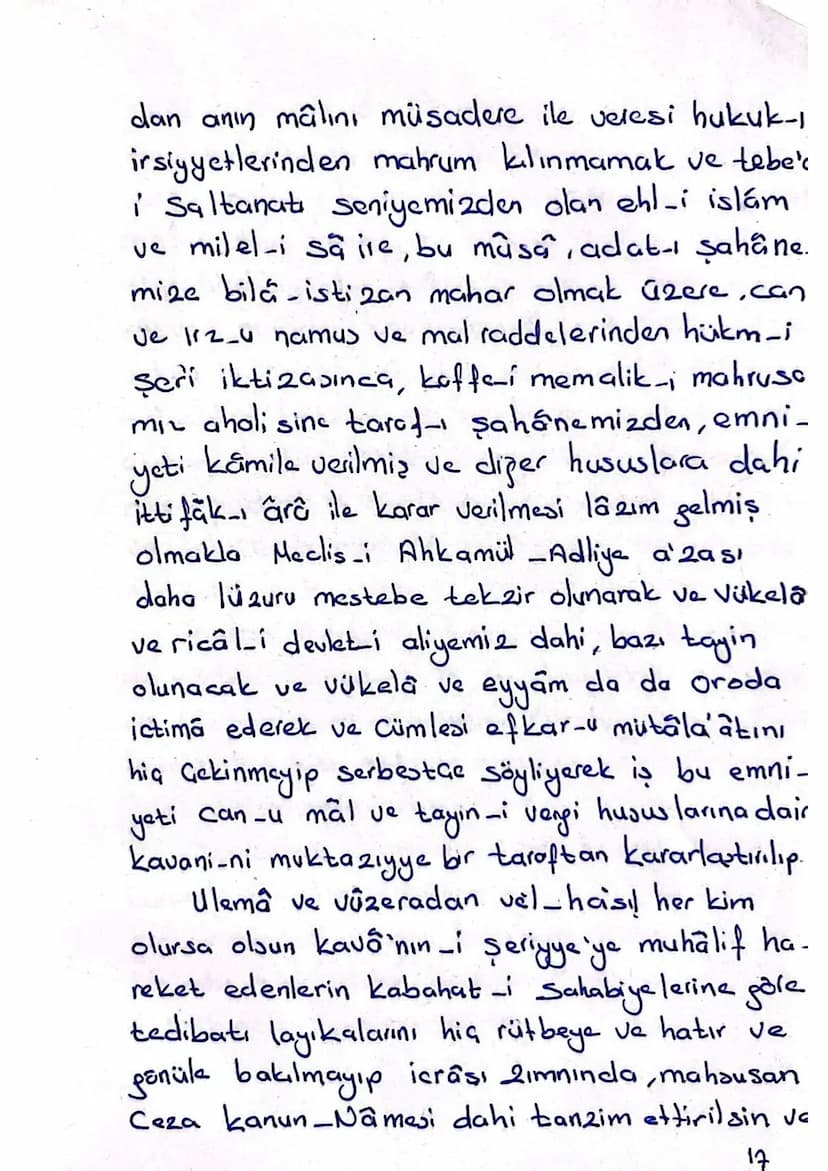 dan anın mâlını müsadere ile veresi hukuk-ı
irsiyyetlerinden mahrum kılınmamak ve tebe'c
i Saltanatı seniyemizden olan ehl-i islâm
ve milel-i sâire, bu mûsâ, adat-ı şahâne.
mize bilâ-istizan mahar olmak üzere, can
ve ırz-u namus ve mal raddelerinden hükm-i
şer'i iktizasınca, kaffe-i memalik-i mahrusa
mız ahalisine taraf-ı şahânemizden, emni-
yeti kâmile verilmiş ve diğer hususlara dahi
ittifâk-ı ârâ ile karar verilmesi lâzım gelmiş
olmakla Meclis-i Ahkamül-Adliye a'zası
daha lüzuru mestebe tekzir olunarak ve Vükelâ
ve ricâl-i devlet-i aliyemiz dahi, bazı tayin
olunacak ve vükelâ ve eyyâm da da orada
ictimâ ederek ve Cümlesi efkar-u mutâla'âtını
hiç Çekinmeyip serbestçe söyliyerek iş bu emni-
yeti can-u mâl ve tayin-i vergi hususlarına dair
kavani-ni muktazıyye bir taraftan kararlaştırılıp.
Ulemâ ve vüzeradan vel-hasıl her kim
olursa olsun kavâ'nın-i şeriyye'ye muhâlif ha-
reket edenlerin kabahat-i Sahabiyelerine göre
tedibatı layıkalarını hiç rütbeye ve hatır ve
gönüle bakılmayıp icrâsı zımnında, mahsusan
Ceza kanun-Nâmesi dahi tanzim ettirilsin ve
17